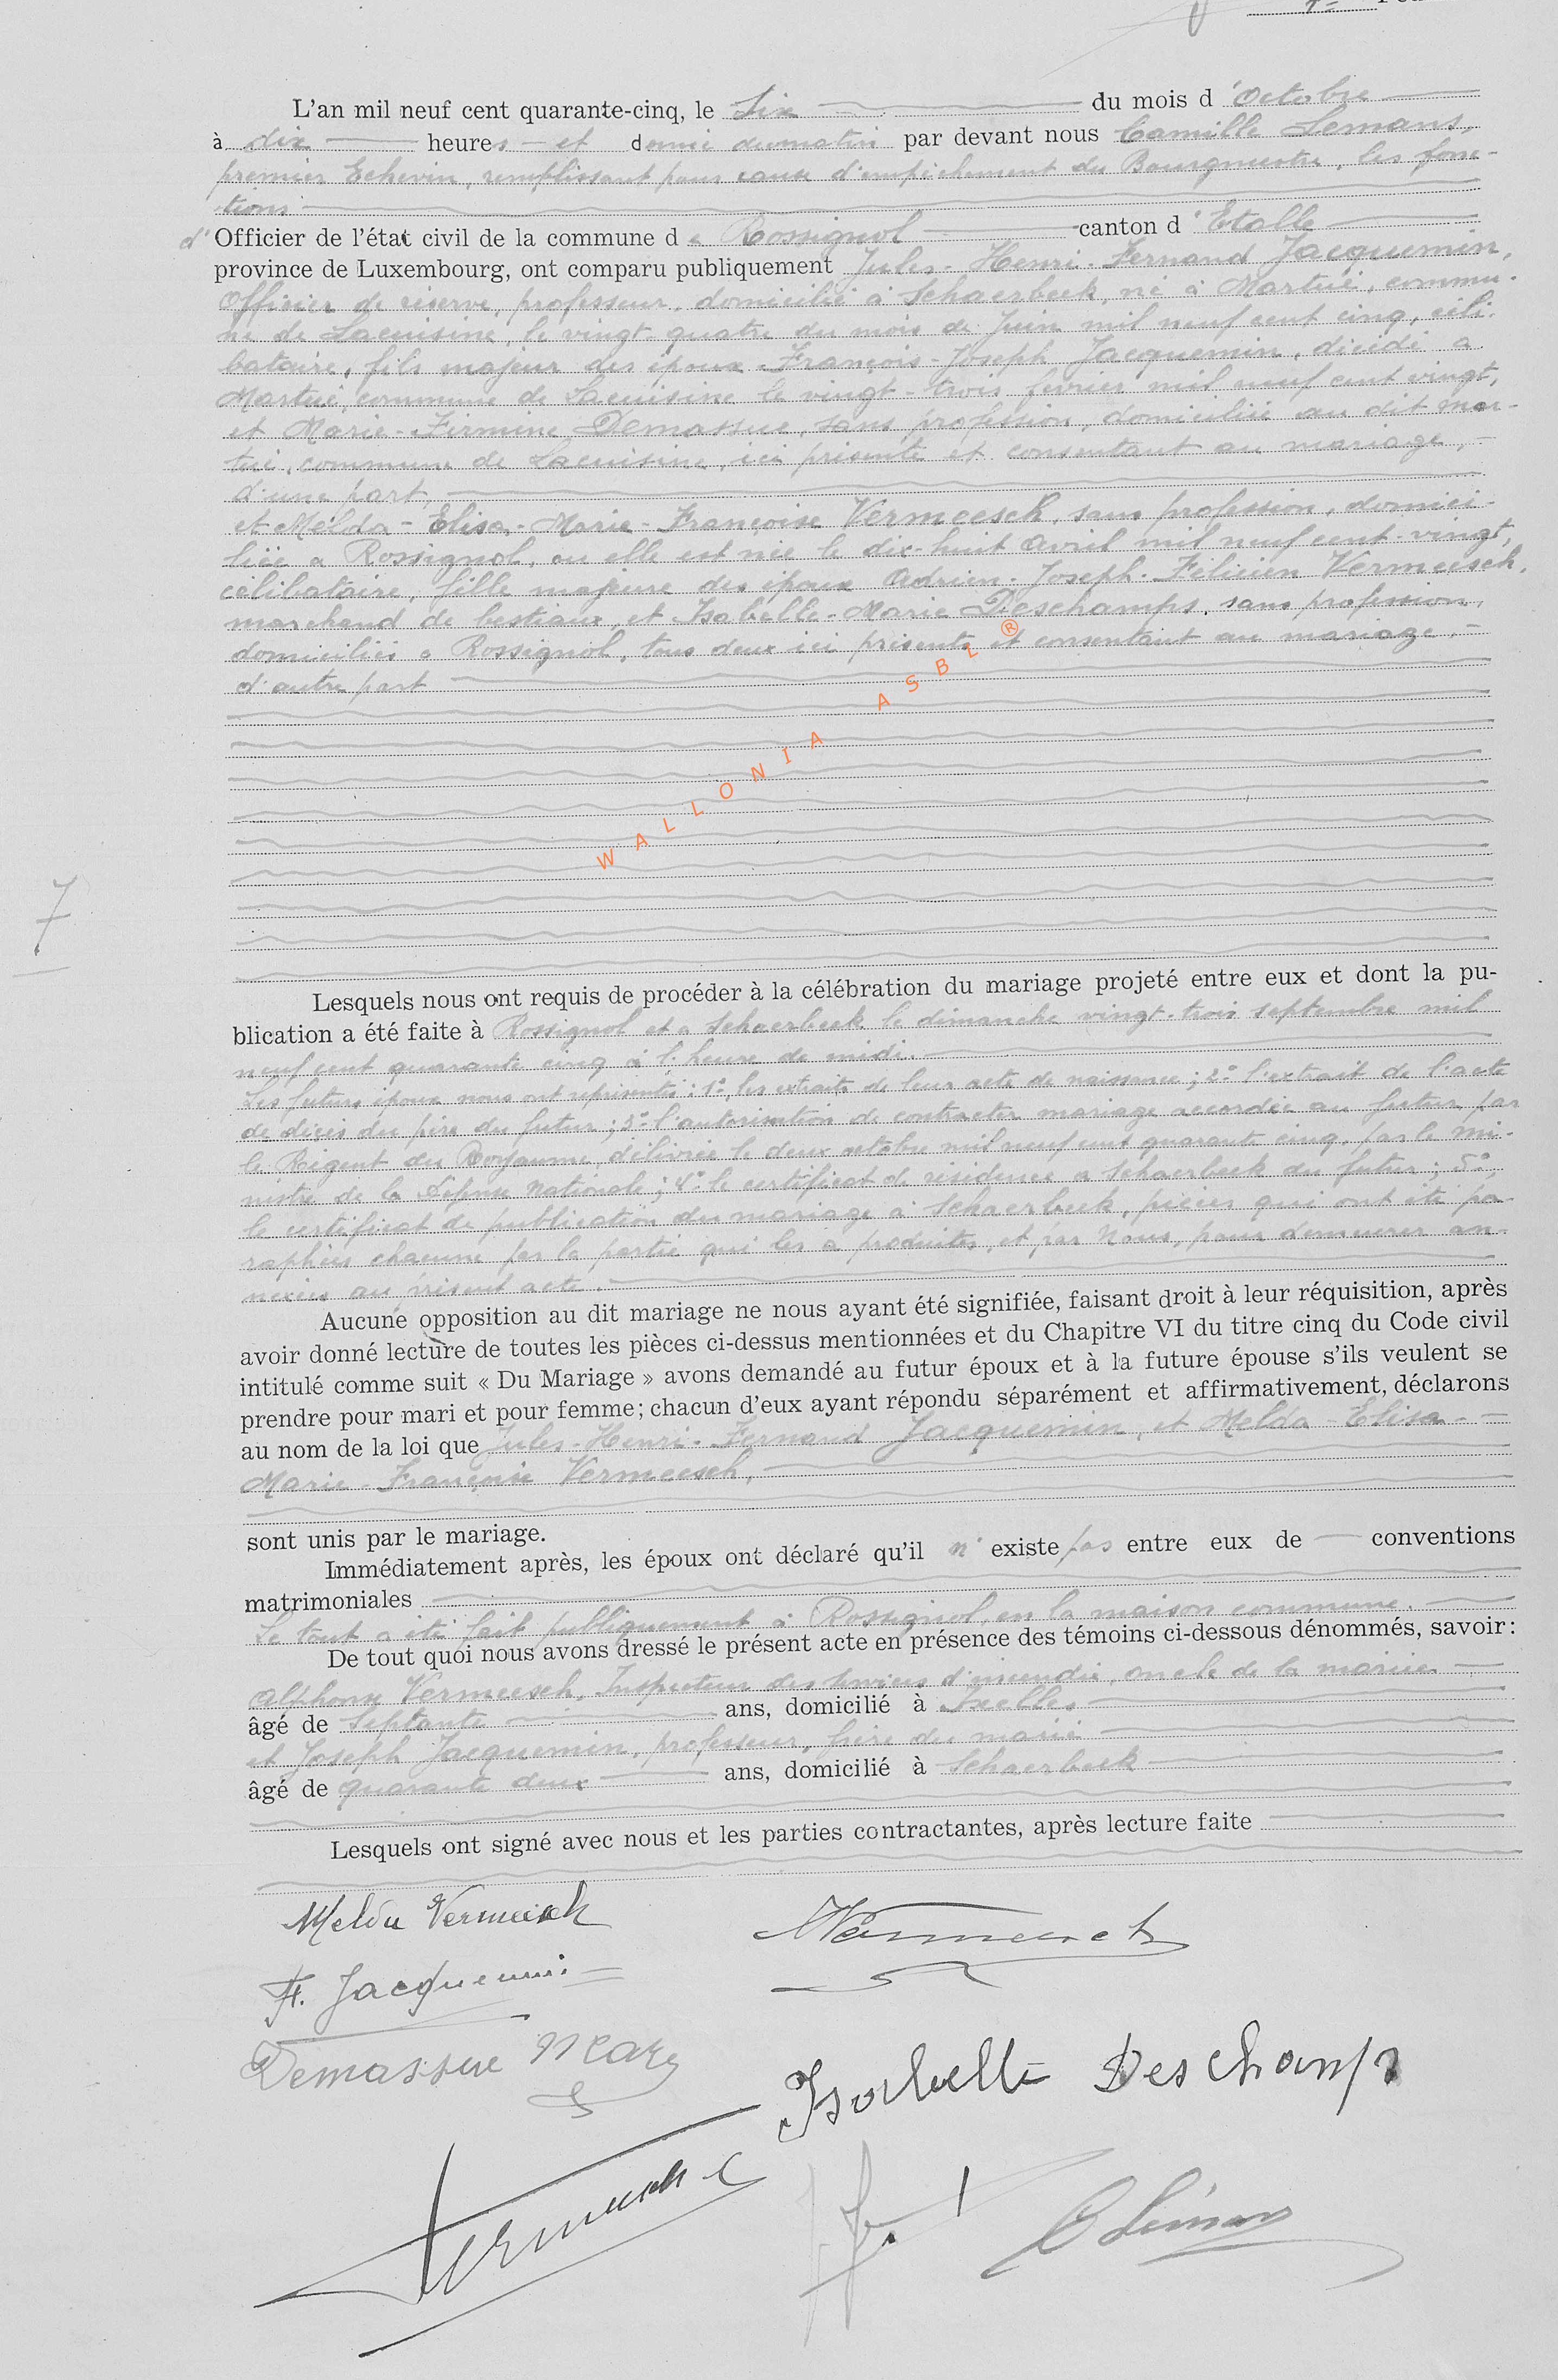 L'an mil neuf cent quarante-cinq, le Six du mois d'Octobre
à dix heures - et demie du matin par devant nous Camille Lemans,
premier Echevin, remplissant pour cause d'empêchement du Bourgmestre, les fonc-
tions
d' Officier de l'état civil de la commune de Rossignol canton d'Etalle
province de Luxembourg, ont comparu publiquement Jules-Henri-Fernand Jacquemin,
Officier de réserve, professeur, domicilié à Schaerbeek, né à Martué, commu-
ne de Lacuisine, le vingt-quatre du mois de Juin mil neuf cent cinq, céli-
bataire, fils majeur des époux François-Joseph Jacquemin, décédé a
Martué, commune de Lacuisine le vingt-trois février mil neuf cent vingt,
et Marie-Firmine Demassue, sans profession, domiciliée au dit Mar-
tué, commune de Lacuisine, ici présente et consentant au mariage, -
d'une part,
et Melda-Elisa-Marie-Françoise Vermeesch, sans profession, domici-
liée a Rossignol, ou elle est née le dix-huit Avril mil neuf cent-vingt,
célibataire, fille majeure des époux Adrien-Joseph-Félicien Vermeesch,
marchand de bestiaux, et Isabelle-Marie Deschamps, sans profession,
domiciliés a Rossignol, tous deux ici présents et consentant au mariage, -
d'autre part
WALLONIA ASBL ®
7
Lesquels nous ont requis de procéder à la célébration du mariage projeté entre eux et dont la pu-
blication a été faite à Rossignol et a Schaerbeek le dimanche vingt-trois septembre mil
neuf cent quarante cinq à l'heure de midi.
Les futurs époux nous ont représenté: 1°, les extraits de leur acte de naissance; 2° l'extrait de l'acte
de décès du père du futur; 3° l'autorisation de contracter mariage accordée au futur par
le Régent du Royaume, délivrée le deux octobre mil neuf cent quarante cinq, par le Mi-
nistre de la Défense Nationale; 4° le certificat de résidence a Schaerbeek du futur; 5°,
le certificat de publication du mariage à Schaerbeek, pièces qui ont été pa-
raphées chacune par la partie qui les a produites, et par Nous, pour demeurer an-
nexées au présent acte.
Aucune opposition au dit mariage ne nous ayant été signifiée, faisant droit à leur réquisition, après
avoir donné lecture de toutes les pièces ci-dessus mentionnées et du Chapitre VI du titre cinq du Code civil
intitulé comme suit « Du Mariage » avons demandé au futur époux et à la future épouse s'ils veulent se
prendre pour mari et pour femme; chacun d'eux ayant répondu séparément et affirmativement, déclarons
au nom de la loi que Jules-Henri-Fernand Jacquemin, et Melda-Elisa-
Marie-Françoise Vermeesch,
sont unis par le mariage.
Immédiatement après, les époux ont déclaré qu'il n'existe pas entre eux de conventions
matrimoniales
Le tout a été fait publiquement à Rossignol, en la maison commune.
De tout quoi nous avons dressé le présent acte en présence des témoins ci-dessous dénommés, savoir:
Alphonse Vermeesch, Inspecteur des services d'incendie, oncle de la mariée
âgé de Septante ans, domicilié à Ixelles
et Joseph Jacquemin, professeur, frère du marié
âgé de quarante deux ans, domicilié à Schaerbeek
Lesquels ont signé avec nous et les parties contractantes, après lecture faite
Melda Vermeesch
AVermeesch
F. Jacquemin
Demassue Marie
Isabelle Deschamps
Vermeesch
C Lemans